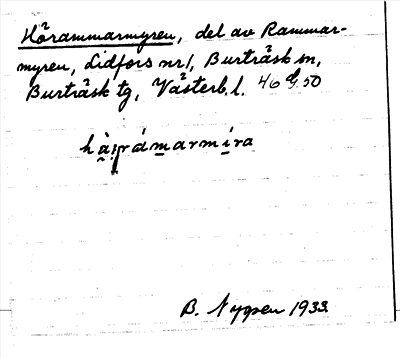 Hörammarmyren, del av Rammar-
myren, Lidfors nr 1, Burträsk sn,
Burträsk tg, Västerb. l. 46 G 50
B. Nygren 1933.